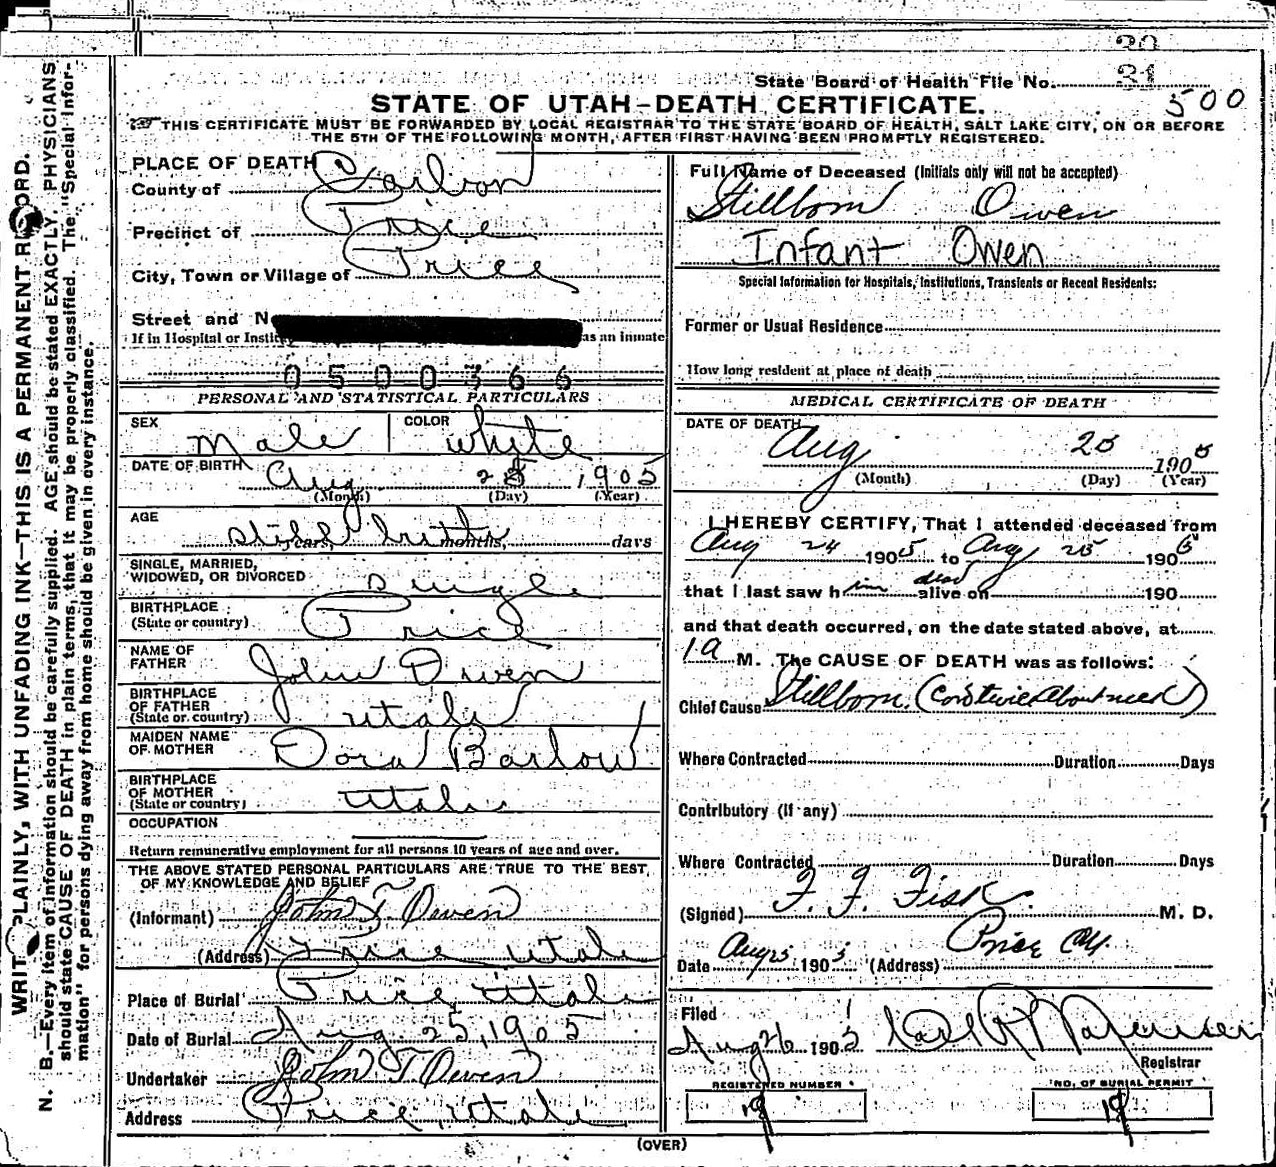 30
State Board of Health File No. 31
STATE OF UTAH—DEATH CERTIFICATE.
500
THIS CERTIFICATE MUST BE FORWARDED BY LOCAL REGISTRAR TO THE STATE BOARD OF HEALTH, SALT LAKE CITY, ON OR BEFORE
THE 5TH OF THE FOLLOWING MONTH, AFTER FIRST HAVING BEEN PROMPTLY REGISTERED.
WRIT PLAINLY, WITH UNFADING INK—THIS IS A PERMANENT R ORD.
N. B.—Every item of information should be carefully supplied. AGE should be stated EXACTLY. PHYSICIANS
should state CAUSE OF DEATH in plain terms, that it may be properly classified. The "Special Infor-
mation" for persons dying away from home should be given in every instance.
PLACE OF DEATH
County of Carbon
Precinct of Price
City, Town or Village of Price
Street and N
If in Hospital or Instit as an inmate
0500366
PERSONAL AND STATISTICAL PARTICULARS
SEX Male COLOR White
DATE OF BIRTH Aug 25, 1905
(Month) (Day) (Year)
AGE
Still birth years, months, days
SINGLE, MARRIED,
WIDOWED, OR DIVORCED Single
BIRTHPLACE
(State or country) Price
NAME OF
FATHER John Owen
BIRTHPLACE
OF FATHER
(State or country) Utah
MAIDEN NAME
OF MOTHER Dora Barlow
BIRTHPLACE
OF MOTHER
(State or country) Utah
OCCUPATION
Return remunerative employment for all persons 10 years of age and over.
THE ABOVE STATED PERSONAL PARTICULARS ARE TRUE TO THE BEST
OF MY KNOWLEDGE AND BELIEF
(Informant) John T. Owen
(Address) Price Utah
Place of Burial Price, Utah
Date of Burial Aug 25, 1905
Undertaker John T. Owen
Address Price, Utah
Full Name of Deceased (Initials only will not be accepted)
Stillborn Owen
Infant Owen
Special Information for Hospitals, Institutions, Transients or Recent Residents:
Former or Usual Residence
How long resident at place of death
MEDICAL CERTIFICATE OF DEATH
DATE OF DEATH
Aug 25 1905
(Month) (Day) (Year)
I HEREBY CERTIFY, That I attended deceased from
Aug 24 1905 to Aug 25 1905
that I last saw him dead alive on 190
and that death occurred, on the date stated above, at
1 a M. The CAUSE OF DEATH was as follows:
Chief Cause Stillborn (Cord twice About neck)
Where Contracted Duration Days
Contributory (if any)
Where Contracted Duration Days
(Signed) F. F. Fisk M. D.
Date Aug 25 1905 (Address) Price
Filed
Aug 26 1905
Registrar
REGISTERED NUMBER
19
NO. OF BURIAL PERMIT
19
(OVER)